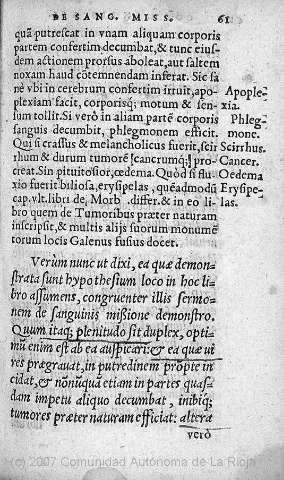 DE SANG. MISS. 61
quā putrescat in vnam aliquam corporis
partem confertim decumbat, & tunc eius-
dem actionem prorsus aboleat, aut saltem
noxam haud cōtemnendam inferat. Sic sa
nè vbi in cerebrum confertim irruit, apo-
plexiam facit, corporisq; motum & sen-
sum tollit. Si verò in aliam partē corporis
sanguis decumbit, phlegmonem efficit.
Qui si crassus & melancholicus fuerit, scir
rhum & durum tumorē [cancrumq;] pro-
creat. Sin pituitosior, œdema. Quòd si flu-
xio fuerit biliosa, erysipelas, quēadmodū
cap. vlt. libri de Morb. differ. & in eo li-
bro quem de Tumoribus præter naturam
inscripsit, & multis alijs suorum monumē
torum locis Galenus fusius docet.
Apople-
xia.
Phleg-
mone.
Scirrhus.
Cancer.
Oedema
Erysipe-
las.
Verùm nunc ut dixi, ea quæ demon-
strata sunt hypothesium loco in hoc li-
bro assumens, congruenter illis sermo-
nem de sanguinis missione demonstro.
Quum itaq; plenitudo sit duplex, opti-
mū enim est ab ea auspicari: & ea quæ ui
res prægrauat, in putredinem prōpte in
cidat, & nōnunquā etiam in partes quas-
dam impetu aliquo decumbat, inibíq;
tumores præter naturam efficiat: altera
verò
(c) 2007 Comunidad Autónoma de La Rioja